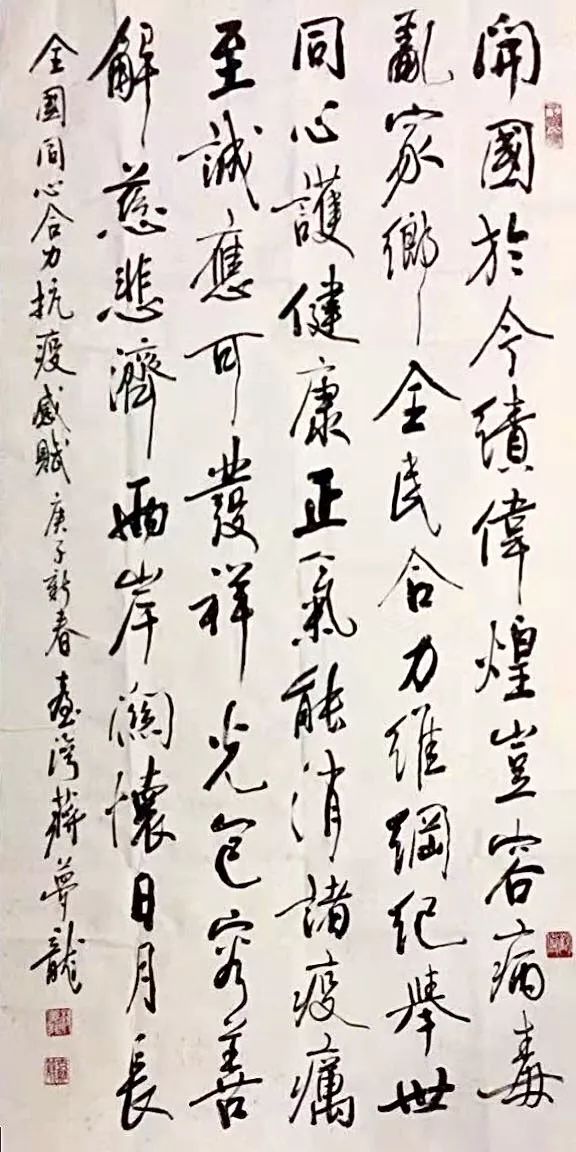 開國於今績偉煌豈容病毒
亂家鄉全民合力維綱紀舉世
同心護健康正氣能消諸疫癘
至誠應可發祥光包容善
解慈悲濟兩岸關懷日月長
全國同心合力抗疫感賦庚子新春臺灣蔣夢龍